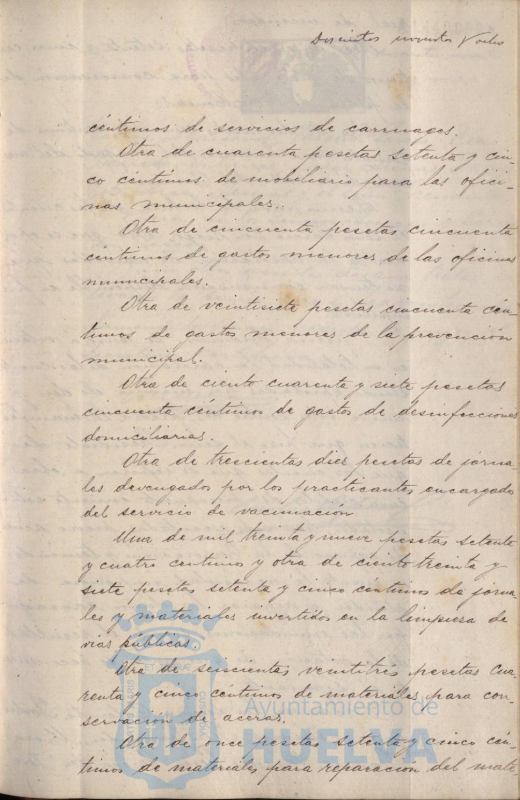 Doscientos noventa y ocho
céntimos de servicios de carruages.
Otra de cuarenta pesetas setenta y cin-
co céntimos de mobiliario para las ofici-
nas municipales.
Otra de cincuenta pesetas cincuenta
céntimos de gastos menores de las oficinas
municipales.
Otra de veintisiete pesetas cincuenta cén-
timos de gastos menores de la prevención
municipal.
Otra de ciento cuarenta y siete pesetas
cincuenta céntimos de gastos de desinfecciones
domiciliarias.
Otra de trescientas diez pesetas de jorna-
les devengados por los practicantes encargados
del servicio de vacunación
Una de mil treinta y nueve pesetas setenta
y cuatro centimos y otra de ciento treinta y
siete pesetas setenta y cinco centimos de jorna-
les y materiales invertidos en la limpieza de
vias públicas.
Otra de seiscientas veintitrés pesetas cua-
renta y cinco centimos de materiales para con-
servación de aceras.
Otra de once pesetas setenta y cinco cén-
timos de materiales para reparación del mate-
Ayuntamiento de
HUELVA